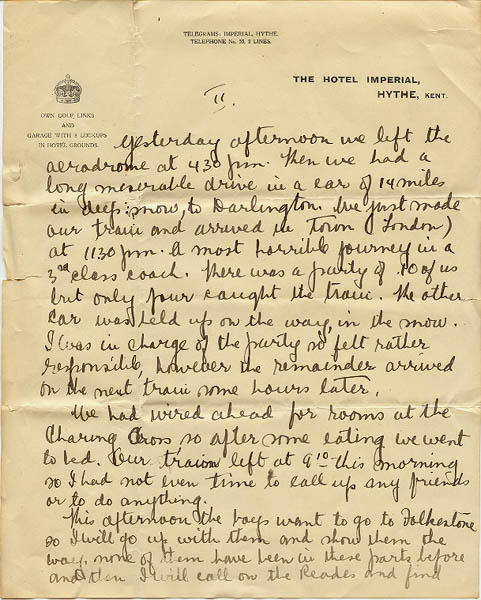 TELEGRAMS: IMPERIAL, HYTHE.
TELEPHONE No. 55, 2 LINES.
THE HOTEL IMPERIAL,
HYTHE, KENT.
OWN GOLF, LINKS
AND
GARAGE WITH 8 LOCKUPS
IN HOTEL GROUNDS.
II.
Yesterday afternoon we left the
aerodrome at 430 pm. Then we had a
long meserable drive in a car of 14 miles
in deep snow, to Darlington. We just made
our train and arrived in Town (London)
at 1130 pm. A most horrible journey in a
3rd class coach. There was a party of 10 of us
but only four caught the train. The other
car was held up on the way, in the snow.
I was in charge of the party so felt rather
responsible, however the remainder arrived
on the next train some hours later.
We had wired ahead for rooms at the
Charing Cross so after some eating we went
to bed. Our train left at 9 10 this morning
so I had not even time to call up any friends
or to do anything.
This afternoon the boys want to go to Folkestone
so I will go up with them and show them the
way, none of them have been in these parts before
and then I will call on the Reades and find